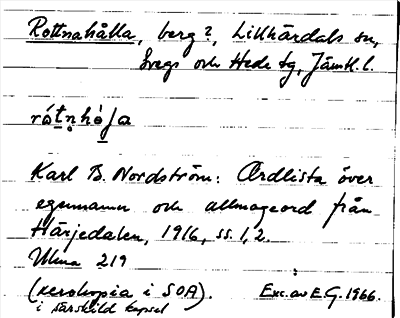 Rottnahålla, berg?, Lillhärdals sn,
Svegs och Hede tg, Jämtl. l.
Karl B. Nordström: Ordlista över
egennamn och allmogeord från
Härjedalen, 1916, ss. 1, 2.
Ulma 219
(xerokopia i SOA). Exc. av E.G. 1966.
i särskild kapsel